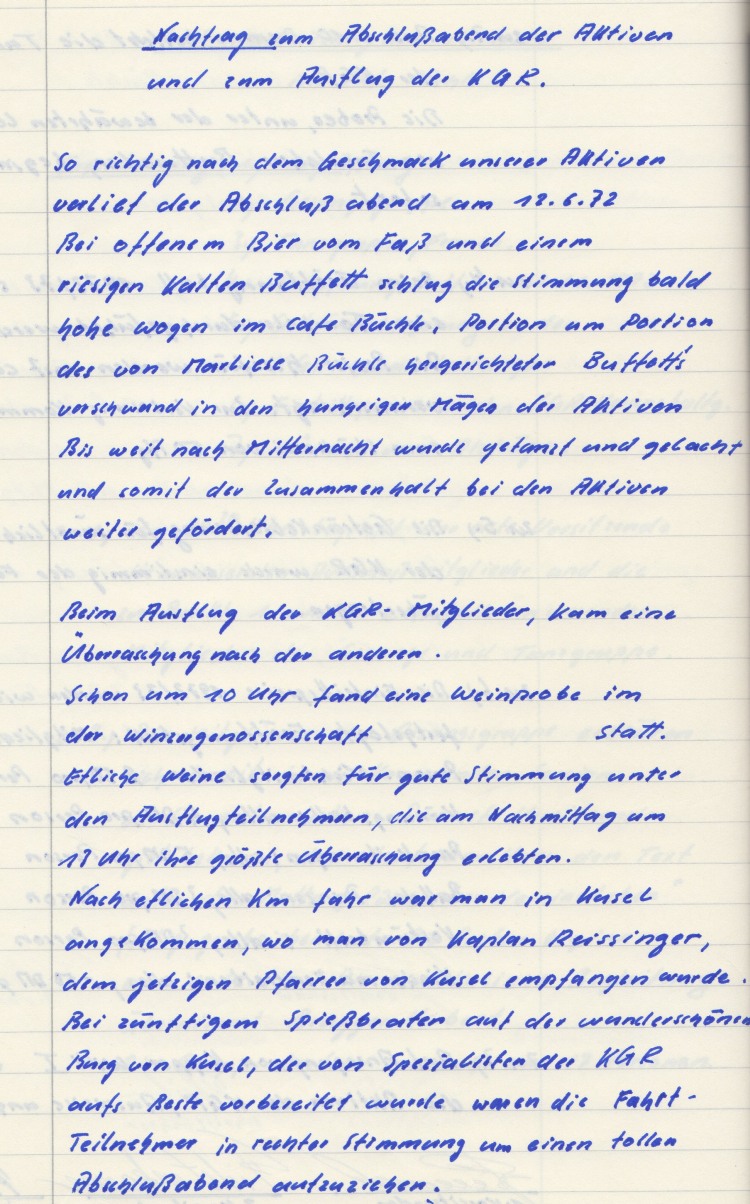 Nachtrag zum Abschlußabend der Aktiven
und zum Ausflug der KGR.
So richtig nach dem Geschmack unserer Aktiven
verlief der Abschluß abend am 12.6.72
Bei offenem Bier vom Faß und einem
riesigen Kalten Buffett schlug die Stimmung bald
hohe wogen im Cafe Büchle. Portion um Portion
des von Marliese Büchle hergerichteter Buffett's
verschwand in den hungrigen Mägen der Aktiven
Bis weit nach Mitternacht wurde getanzt und gelacht
und somit der Zusammenhalt bei den Aktiven
weiter gefördert.
Beim Ausflug der KGR-Mitglieder, kam eine
Überraschung nach der anderen.
Schon um 10 Uhr fand eine Weinprobe im
der Winzergenossenschaft statt.
Etliche Weine sorgten für gute Stimmung unter
den Ausflugteilnehmern, die am Nachmittag um
13 Uhr ihre größte Überraschung erlebten.
Nach etlichen Km fahr war man in Kusel
angekommen, wo man von Kaplan Reissinger,
dem jetzigen Pfarrer von Kusel empfangen wurde.
Bei zünftigem Spießbraten auf der wunderschönen
Burg von Kusel, der von Spezialisten der KGR
aufs Beste vorbereitet wurde waren die Fahrt-
Teilnehmer in rechter Stimmung um einen tollen
Abschlußabend aufzuziehen.